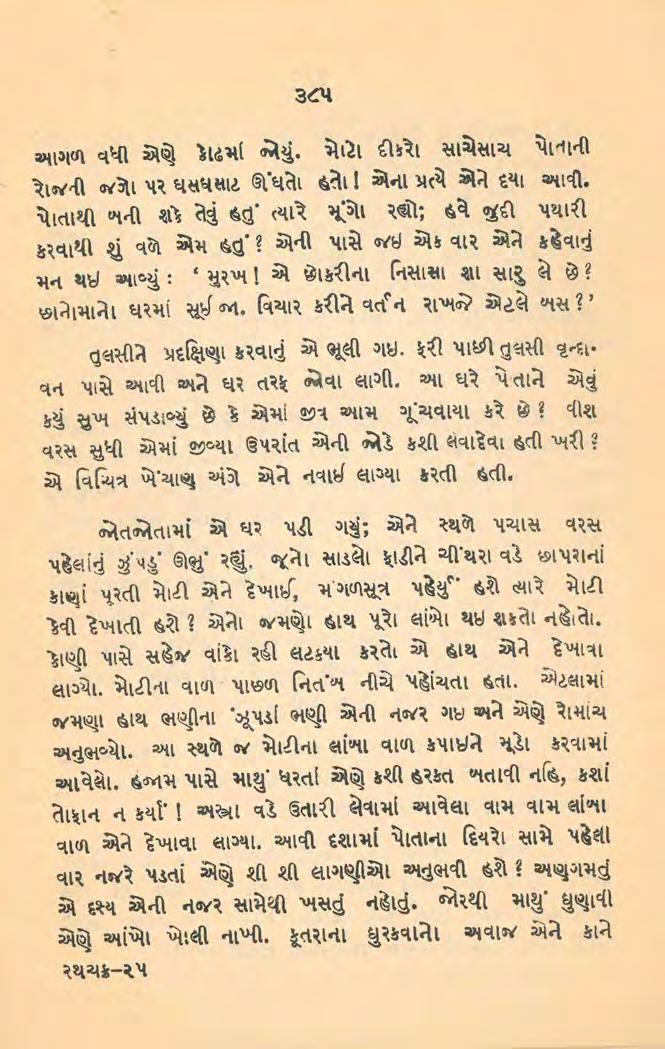 ૩૮૫
આગળ વધી એણે કોઢમાં જોયું. મોટો દીકરો સાચેસાચ પોતાની
રોજની જગો પર ઘસઘસાટ ઊંઘતો હતો! એના પ્રત્યે એને દયા આવી.
પોતાથી બની શકે તેવું હતું ત્યારે મૂંગો રહ્યો; હવે જુદી પથારી
કરવાથી શું વળે એમ હતું? એની પાસે જઇ એક વાર એને કહેવાનું
મન થઇ આવ્યું : ‘મુરખ! એ છોકરીના નિસાસા શા સારુ લે છે?
છાનોમાનો ઘરમાં સૂઈ જા. વિચાર કરીને વર્તન રાખજે એટલે બસ?’
તુલસીને પ્રદક્ષિણા કરવાનું એ ભૂલી ગઇ. ફરી પાછી તુલસી વૃન્દા-
વન પાસે આવી અને ઘર તરફ જોવા લાગી. આ ઘરે પોતાને એવું
કયું સુખ સંપડાવ્યું છે કે એમાં જીવ આમ ગૂંચવાયા કરે છે? વીશ
વરસ સુધી એમાં જીવ્યા ઉપરાંત એની જોડે કશી લેવાદેવા હતી ખરી?
એ વિચિત્ર ખેંચાણ અંગે એને નવાઈ લાગ્યા કરતી હતી.
જોતજોતામાં એ ઘર પડી ગયું; એને સ્થળે પચાસ વરસ
પહેલાંનું ઝુંપડું ઊભું રહ્યું. જૂનો સાડલો ફાડીને ચીંથરા વડે છાપરાનાં
કાણાં પૂરતી મોટી એને દેખાઈ, મંગળસૂત્ર પહેર્યું હશે ત્યારે મોટી
કેવી દેખાતી હશે? એનો જમણો હાથ પૂરો લાંબો થઇ શકતો નહોતો.
કોણી પાસે સહેજ વાંકો રહી લટક્યા કરતો એ હાથ એને દેખાવા
લાગ્યો. મોટીના વાળ પાછળ નિતંબ નીચે પહોંચતા હતા. એટલામાં
જમણા હાથ ભણીના ઝૂપડાં ભણી એની નજર ગઇ અને એણે રોમાંચ
અનુભવ્યો. આ સ્થળે જ મોટીના લાંબા વાળ કપાઇને મૂડો કરવામાં
આવેલો. હજામ પાસે માથું ધરતાં એણે કશી હરકત બતાવી નહિ, કશાં
તોફાન ન કર્યાં! અસ્ત્રા વડે ઉતારી લેવામાં આવેલા વામ વામ લાંબા
વાળ એને દેખાવા લાગ્યા. આવી દશામાં પોતાના દિયરો સામે પહેલી
વાર નજરે પડતાં એણે શી શી લાગણીઓ અનુભવી હશે? અણુગમતું
એ દૃશ્ય એની નજર સામેથી ખસતું નહોતું. જોરથી માથું ધુણાવી
એણે આંખો ખોલી નાખી. કૂતરાના ઘુરકવાનો અવાજ એને કાને
રથચક્ર–૨૫